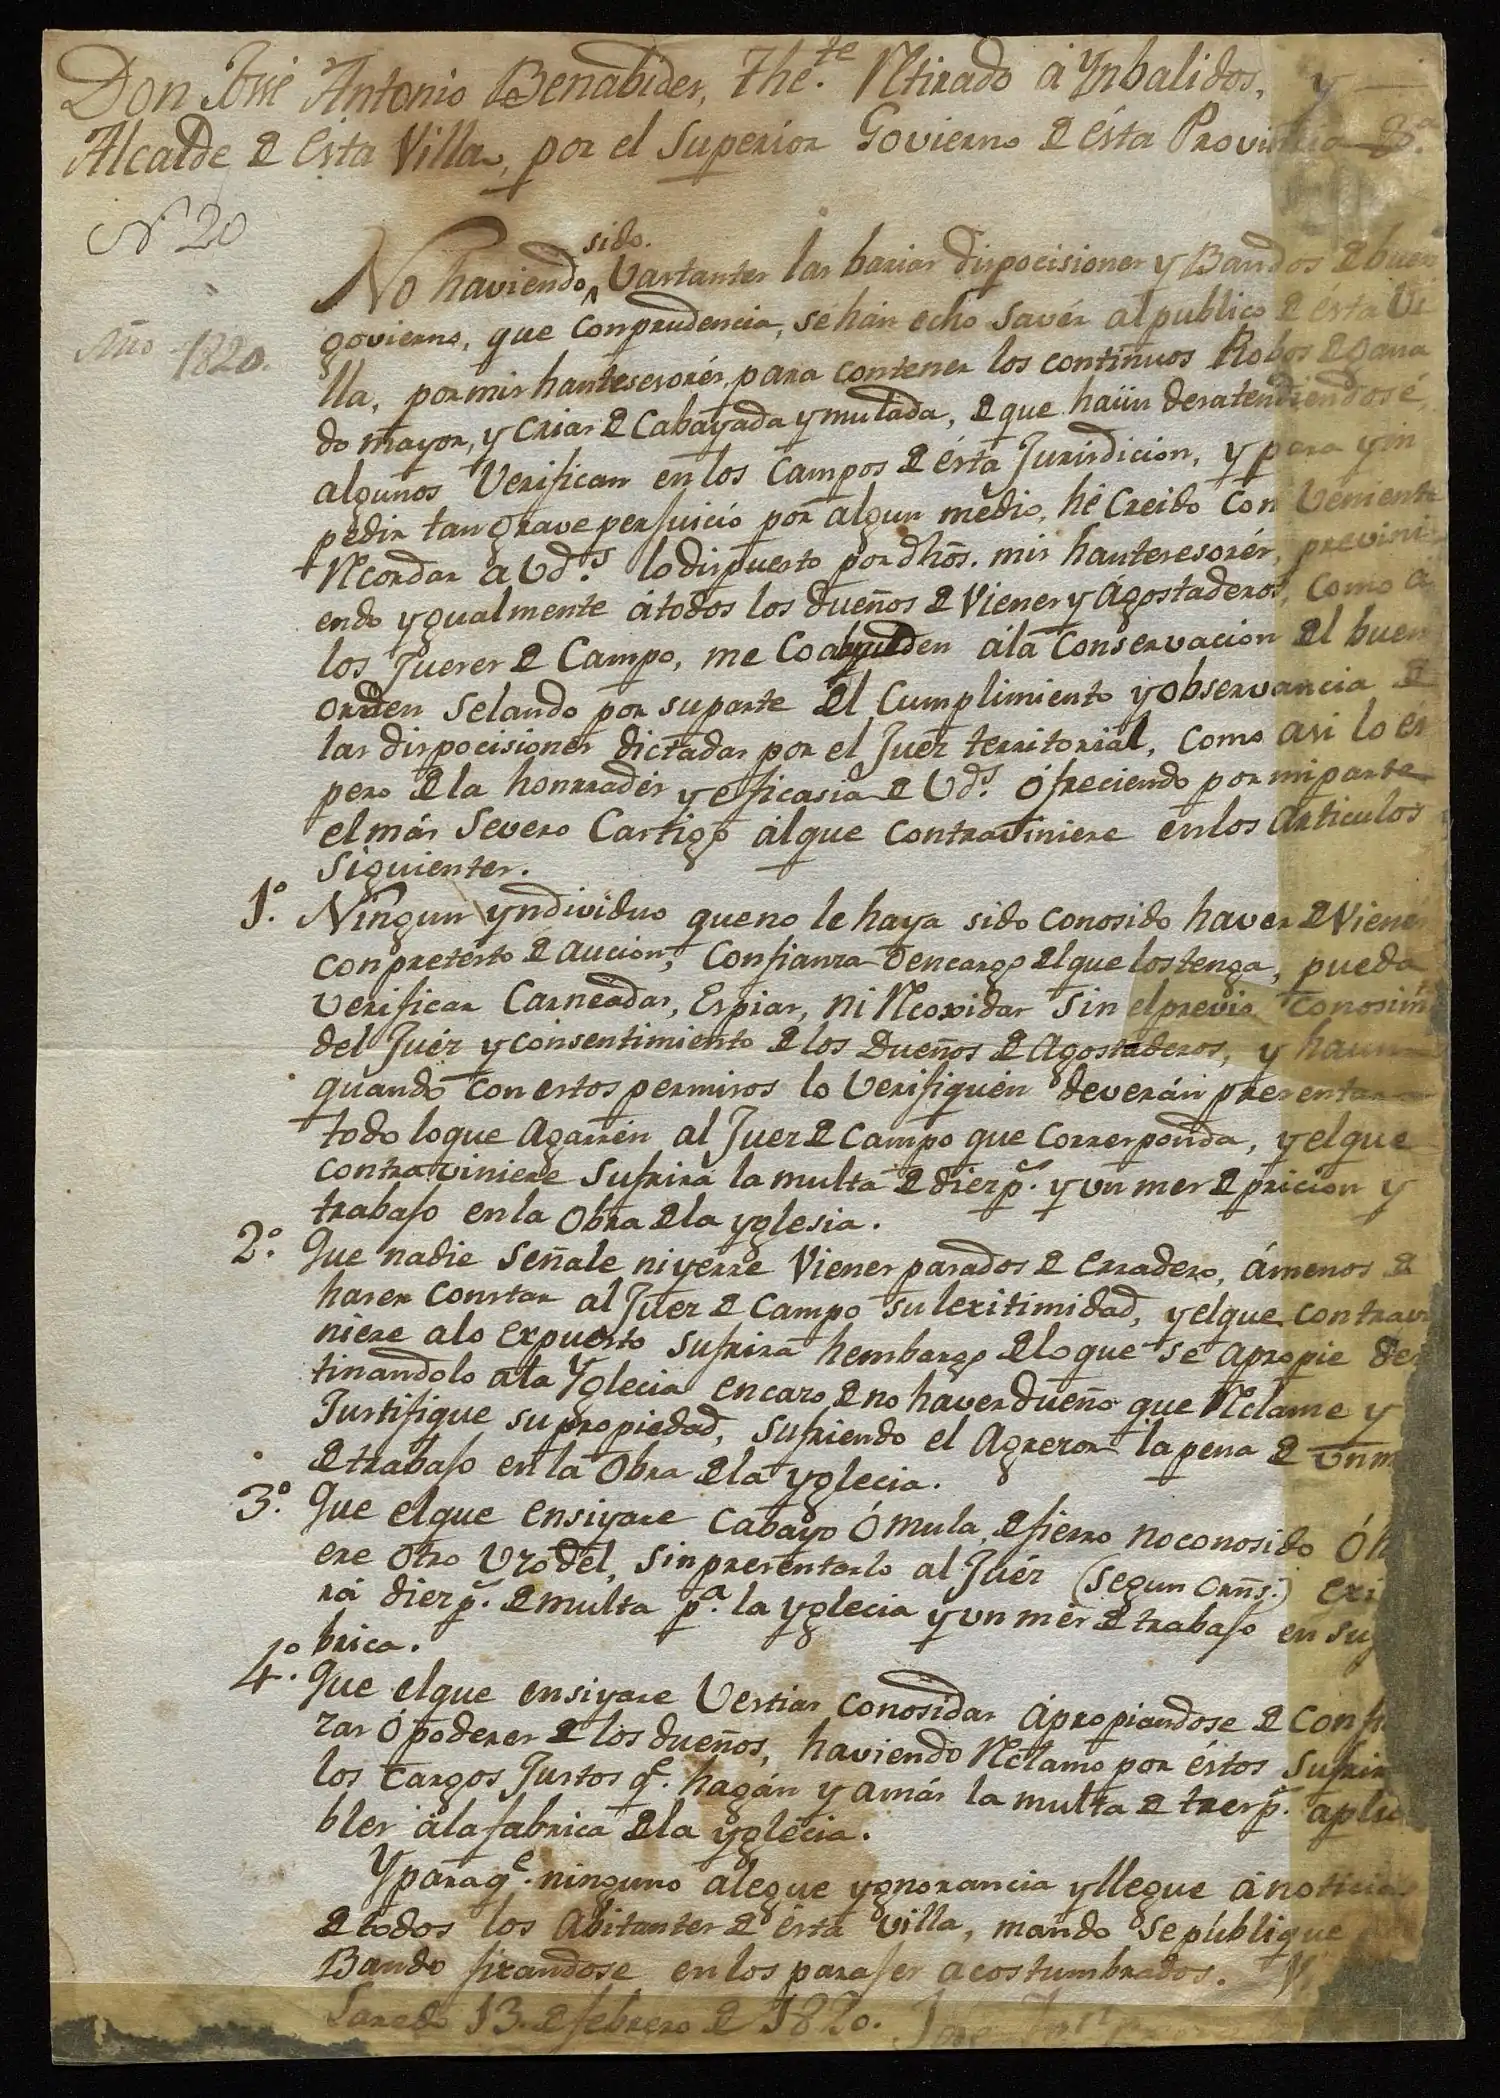 Don José Antonio Benabides, The.te Rtirado á Ynbalidos, y
Alcalde de Esta Villa, por el Superior Govierno de ésta Provincia &.a
N 20
Año 1820.
No haviendo sido. Vastantes las barias dispocisiones y Bandos de buen
govierno, que Conprudencia, se hán echo Savér al publico de ésta Vi
lla, por mis hantesesorés, para contener los continuos Robos de gana
do mayor, y Crias de Cabayada y mulada, de que haún desatendiendosé
algunos Verifican en los Campos de ésta Jurisdicion, y para yin
pedir tan grave perjuició por algun médio, hé Creido Conveniente
Rcordar a Vd.s lo dispuesto por dhõs. mis hanteresorés, previni
endo ygualmente átodos los dueños de Vienes y Ágostaderos, Como á
los Jueses de Campo, me Coayuden ála Conservacion del buen
orden Selando por suparte del Cumplimiento y observancia de
las dispocisiones dictadas por el Juez territorial, Como asi lo és
pero de la honrradés y eficasia de Vd.s ófreciendo por miparte
el más Severo Castigo álque contraviniere en los Articulos
Siguientes.
1.º Ningun yndividuo queno le haya sido conosido haver de Viene
con pretésto de aucion, Confianza Óencargo del que los tenga, pueda
verificar Carneadas, Espiar, ni Rcoxidas Sin el previo Conosimto
del Juéz y consentimiento de los Dueños de Agostaderos, y haun
quando Con estos permisos lo Verifiquén deverán presentar
todo loque Agarrén al Juez de Campo que Corresponda, y elque
contraviniere Sufrirá la multa de diez p.s y un mes de pricion y
trabajo en la Obra de la yglesia.
2.º Que nadie Señale ni yerre Vienes parados de erradero, ámenos de
haser Constar al Juez de Campo su lexitimidad, y elque contravi
niere alo expuesto sufrirá hembargo de lo que se Apropie des
tinandolo ála Yglecia en caso de no haver dueño que Rclame y
Justifique su propiedad, Sufriendo el Agresor la pena de un m
de trabajo en la Obra de la yglecia.
3.º Que elque ensiyare Cabayo Ó Mula, de fierro no conosido Ó h
ere Otro Uzo del, Sin presentarlo al Juéz (Segun Orñs.) exi
rá diez p.s de multa p.a la yglecia y un més de trabajo en su
brica.
4.º Que elque ensiyare Vestias Conosidas Ápropiandose de Confi
zas Ó poderes de los dueños, haviendo Rclamo por éstos Sufrir
los Cargos Justos q.e hagán y a más la multa de tres p.s aplic
bles álafabrica de la yglécia.
Y para q.e ninguno alegue ygnorancia y llegue á noticia
de todos los Abitantes de ésta Villa, mando Se publique
Bando fixandose en los parajes acostumbrados. V.
Laredo 13. de febrero de 1820. José